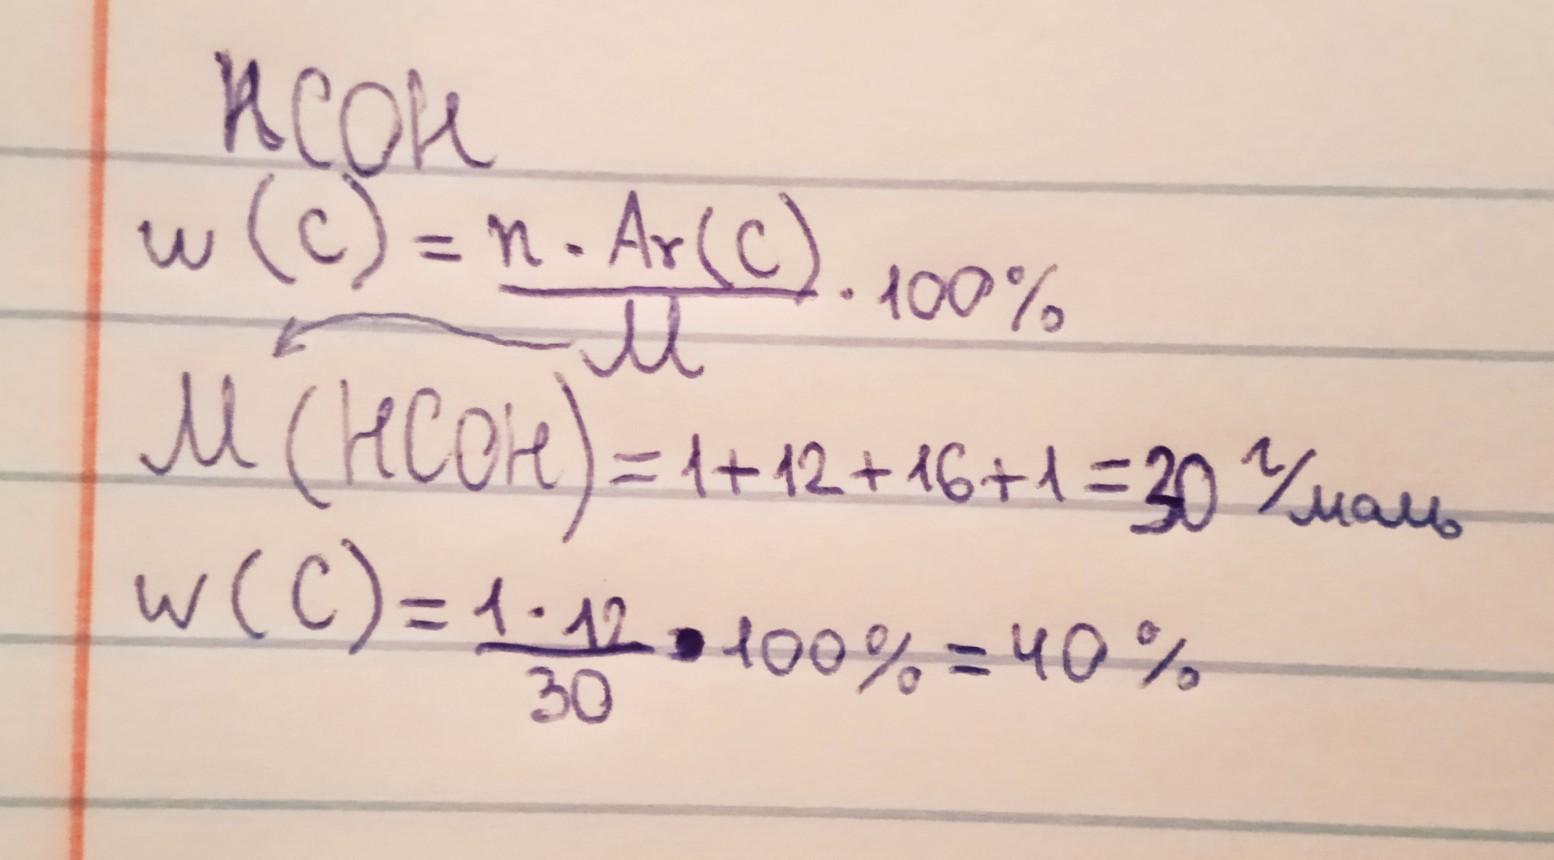 HCOH
w(C) = n · Ar(C) / M · 100%
M(HCOH) = 1 + 12 + 16 + 1 = 30 г/моль
w(C) = 1 · 12 / 30 · 100% = 40%